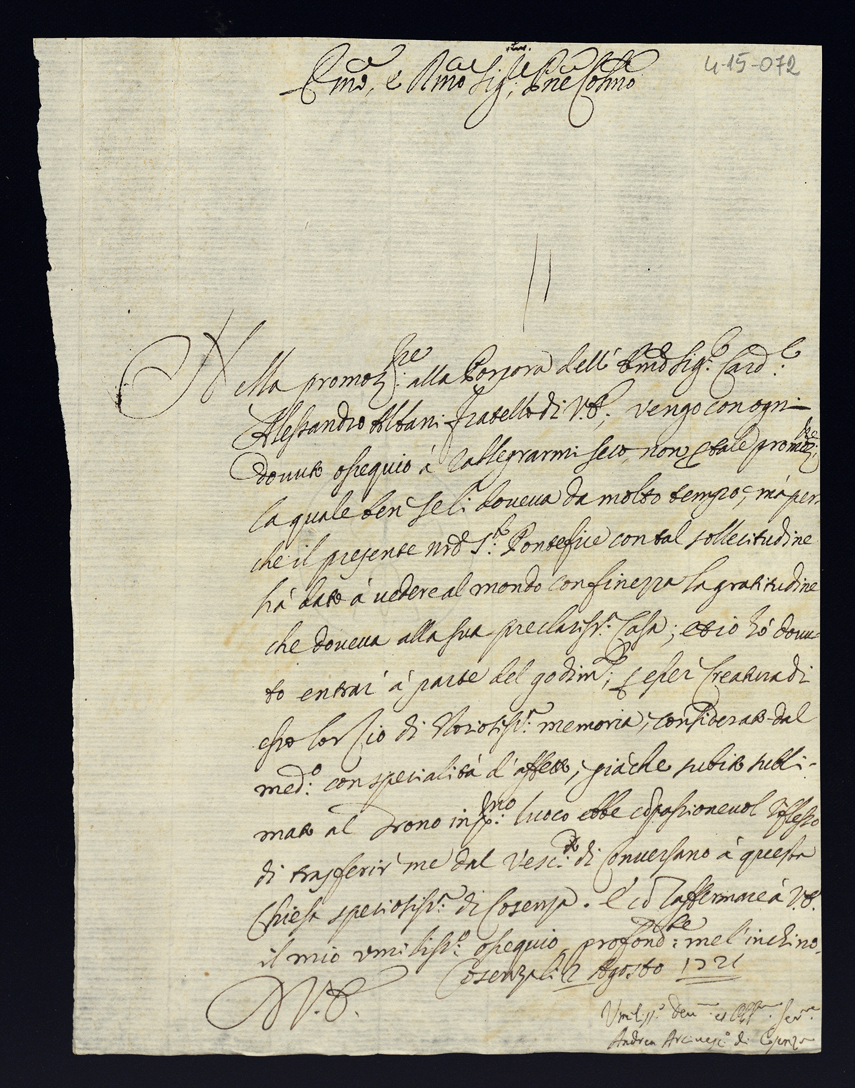 4-15-072
Em.o, e R.mo Sig.re, P.ne Col.mo
Nella promoz.ne alla Porpora dell' Em.o Sig.r Card.l
Alessandro Albani fratello di V.E., vengo con ogni
dovuto ossequio à rallegrarmi seco, non p tale promoz.ne;
la quale ben se li doveva da molto tempo; mà per-
che il presente n̄ro S.to Pontefice con tal sollecitudine
hà dato à vedere al mondo con finezza la gratitudine
che doveva alla sua preclariss.a Casa; et io hó dovu-
to entrar' á parte del godim.to, p esser Creatura di
esso lor Zio di memoria, considerato dal
med.o con specialitá d'affetto, giache subito subli-
mato al Trono in p.mo luoco ebbe cōpassionevol riflesso
di trasferir me dal Vesc.to di Conversano á questa
Chiesa speciosiss.a di Cosenza. E cō raffermare á V.E.
il mio umiliss.o ossequio, profond.te me l'inchino.
Cosenza li 2 Agosto 1721
D V.E.
Umiliss.o Dev.mo et Obb.mo Ser.re
Andrea Arcivesc.o di Cosenza